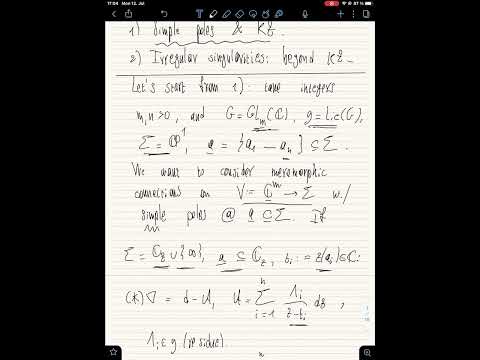 17:04 Mon 12. Jul
1) Simple poles & KZ.
2) Irregular singularities: beyond KZ.
Let's start from 1): take integers
m, n > 0, and G = GL_m(ℂ), g = Lie(G),
Σ = ℂP¹, a = {a₁ — aₙ} ⊆ Σ.
We want to consider meromorphic
connections on V = ℂ^m → Σ w/
simple poles @ a ⊆ Σ. If
Σ = ℂ_z ∪ {∞}, a ⊆ ℂ_z, t_i := z(a_i) ∈ ℂ:
(*) ∇ = d - U, U = Σ_{i=1}^{n} Λ_i / (z - t_i) dz,
Λ_i ∈ g (residue).